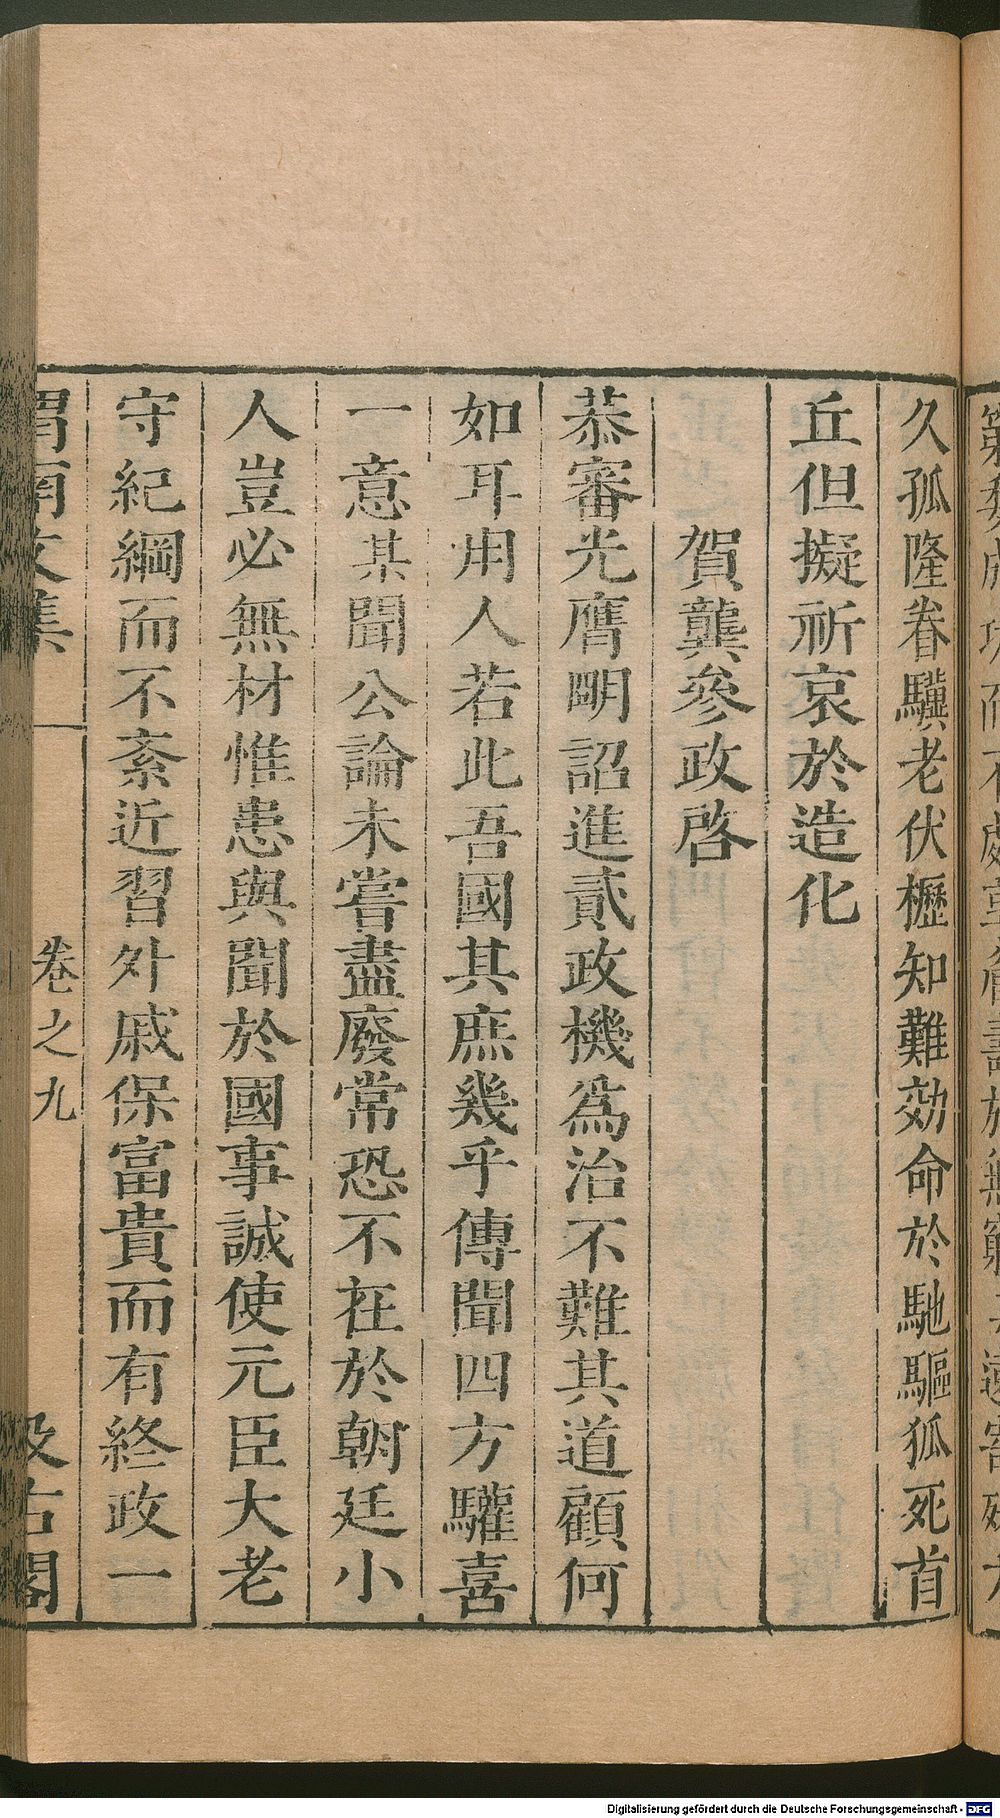 久孤隆眷驥老伏櫪知難効命於馳驅狐死首
丘但擬祈哀於造化
賀龔參政啓
恭審光膺明詔進貳政機爲治不難其道顧何
如耳用人若此吾國其庶幾乎傳聞四方驩喜
一意某聞公論未嘗盡廢常恐不在於朝廷小
人豈必無材惟患與聞於國事誠使元臣大老
守紀綱而不紊近習外戚保富貴而有終政一
渭南文集 卷之九 汲古閣
Digitalisierung gefördert durch die Deutsche Forschungsgemeinschaft - DFG